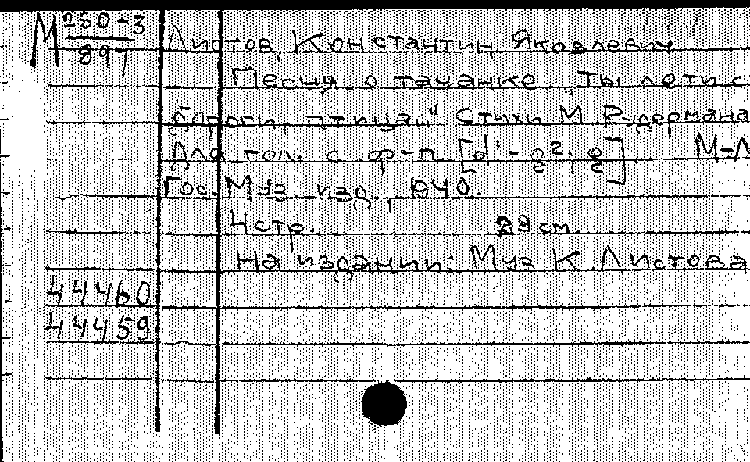 М 250-3
897
Листов, Константин Яковлевич
Песня о тачанке "Ты лети с
дороги, птица..." Стихи М. Рудермана
Для гол. с ф-п. [d¹-g².g] М-Л
Гос. Муз. изд., 1940.
4 стр. 29 см.
На издании: Муз К. Листова
44460
44459